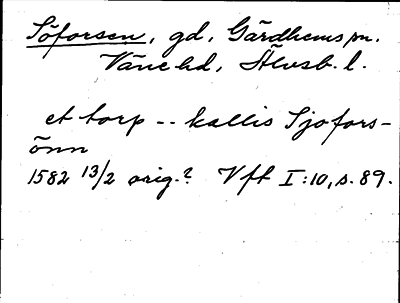 Söforsen, gd, Gärdhems sn.
Väne hd, Älvsb. l.
et torp -- kallis Sjofors-
önn
1582 13/2 orig.? Vff I:10, s. 89.